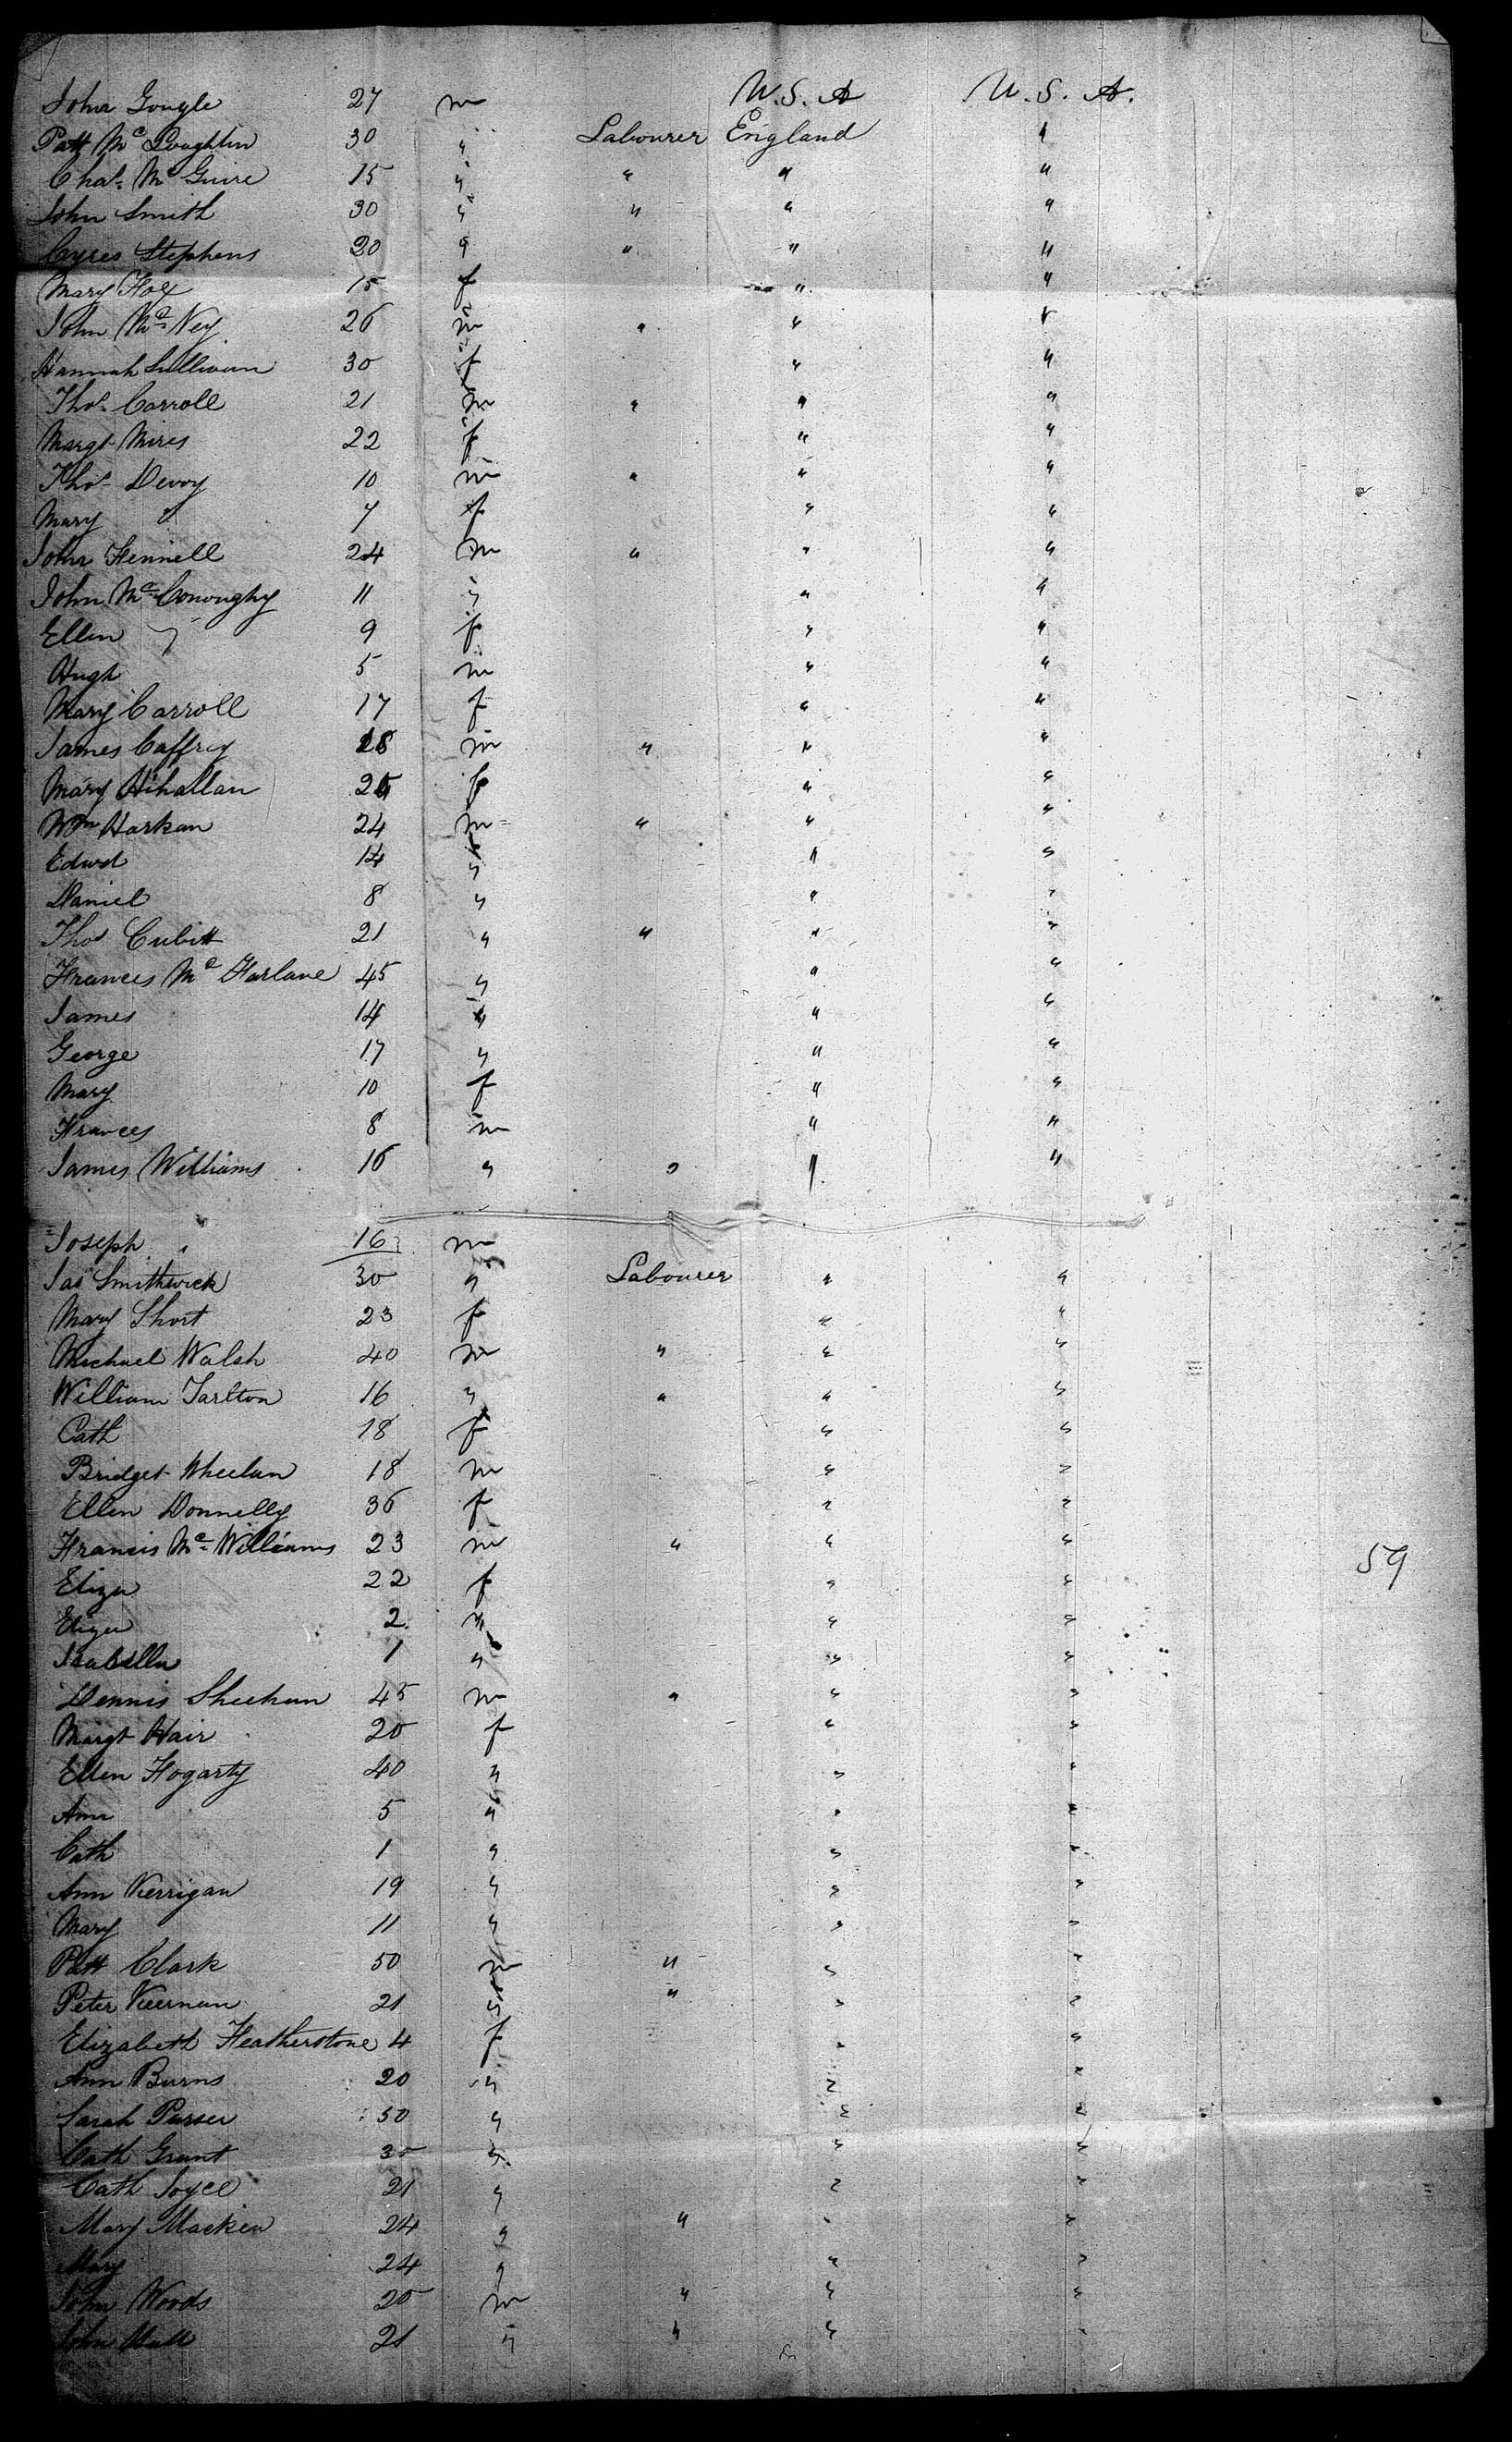 John Gongle 27 m U.S.A U.S.A.
Patt Mc Loughlin 30 " Labourer England "
Chas. Mc Guire 15 " " " "
John Smith 30 " " " "
Cyres Stephens 20 " " " "
Mary Foy 15 f " "
John Mc Vey 26 m " " "
Hannah Sullivan 30 f " "
Thos. Carroll 21 m " " "
Margt Mires 22 f " "
Thos. Devoy 10 m " " "
Mary " 7 f " "
John Fennell 24 m " " "
John Mc Conoughy 11 " " "
Ellen " 9 f " "
Hugh 5 m " "
Mary Carroll 17 f " "
James Caffrey 18 m " " "
Mary 25 f " "
Wm Harkan 24 m " " "
Edwd 14 " " "
Daniel 8 " " "
Thos Cubitt 21 " " " "
Frances Mc Farlane 45 " " "
James 14 " " "
George 17 " " "
Mary 10 f " "
Frances 8 m " "
James Williams 16 " " " "
Joseph " 16 m
Jas Smithwick 30 " Labourer " "
Mary Short 23 f " "
Michael Walsh 40 m " " "
William Tarlton 16 " " " "
Cath 18 f " "
Bridget Wheelan 18 m " "
Ellen Donnelly 36 f " "
Francis Mc Williams 23 m " " "
59
Eliza 22 f " "
Eliza 2 " " "
Isabella 1 " " "
Dennis Sheehan 45 m " " "
Margt Hair 20 f " "
Ellen Fogarty 40 " " "
Ann 5 " " "
Cath 1 " " "
Ann Kerrigan 19 " " "
Mary 11 " " "
Patt Clark 50 m " " "
Peter Keernan 21 " " " "
Elizabeth Featherstone 4 f " "
Ann Burns 20 " " "
Sarah Purser 50 " " "
Cath Grant 30 " " "
Cath Joyce 21 " " "
Mary Macken 24 " " " "
Mary 24 " " "
John Woods 20 m " " "
John Hall 21 " " "